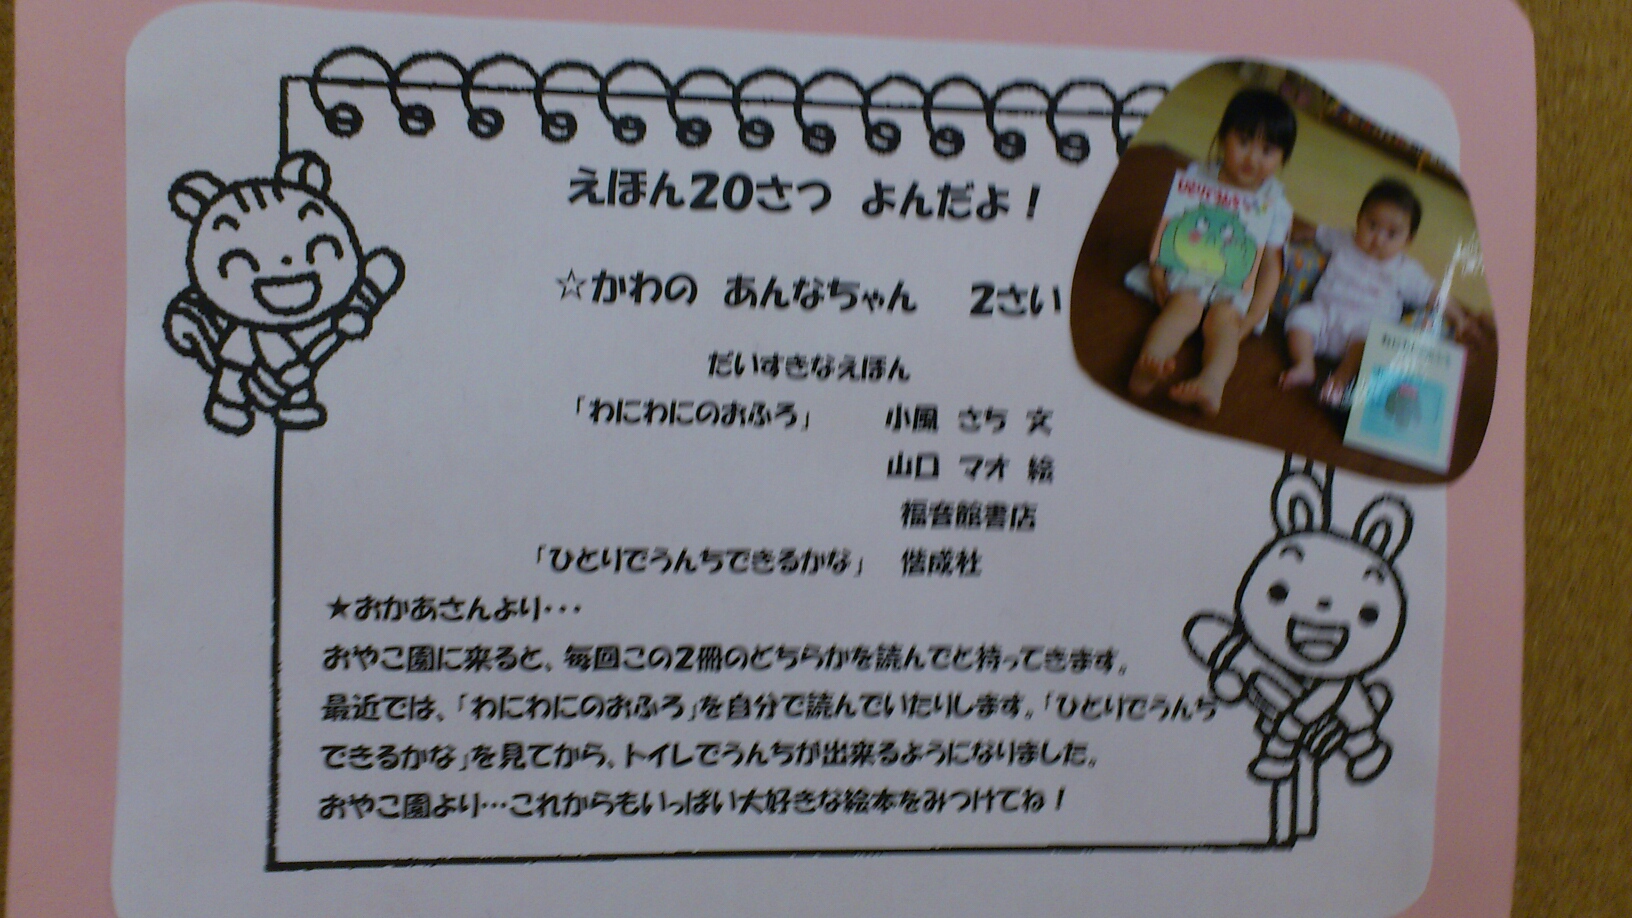 えほん20さつ よんだよ！
☆かわの あんなちゃん 2さい
だいすきなえほん
「わにわにのおふろ」 小風 さち 文
山口 マオ 絵
福音館書店
「ひとりでうんちできるかな」 偕成社
★おかあさんより・・・
おやこ園に来ると、毎回この2冊のどちらかを読んでと持ってきます。
最近では、「わにわにのおふろ」を自分で読んでいたりします。「ひとりでうんち
できるかな」を見てから、トイレでうんちが出来るようになりました。
おやこ園より・・・これからもいっぱい大好きな絵本をみつけてね！